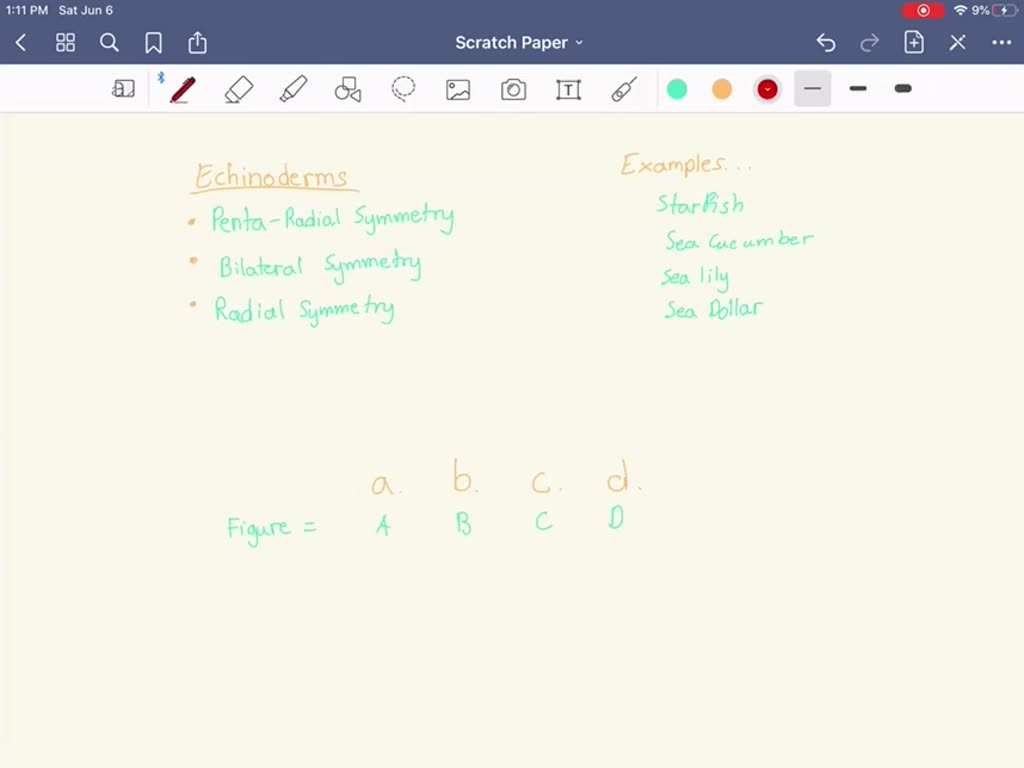 1:11 PM Sat Jun 6
9%
Scratch Paper
Echinoderms
• Penta-Radial Symmetry
• Bilateral Symmetry
• Radial Symmetry
Examples...
Starfish
Sea Cucumber
Sea lily
Sea Dollar
a. b. c. d.
Figure = A B C D